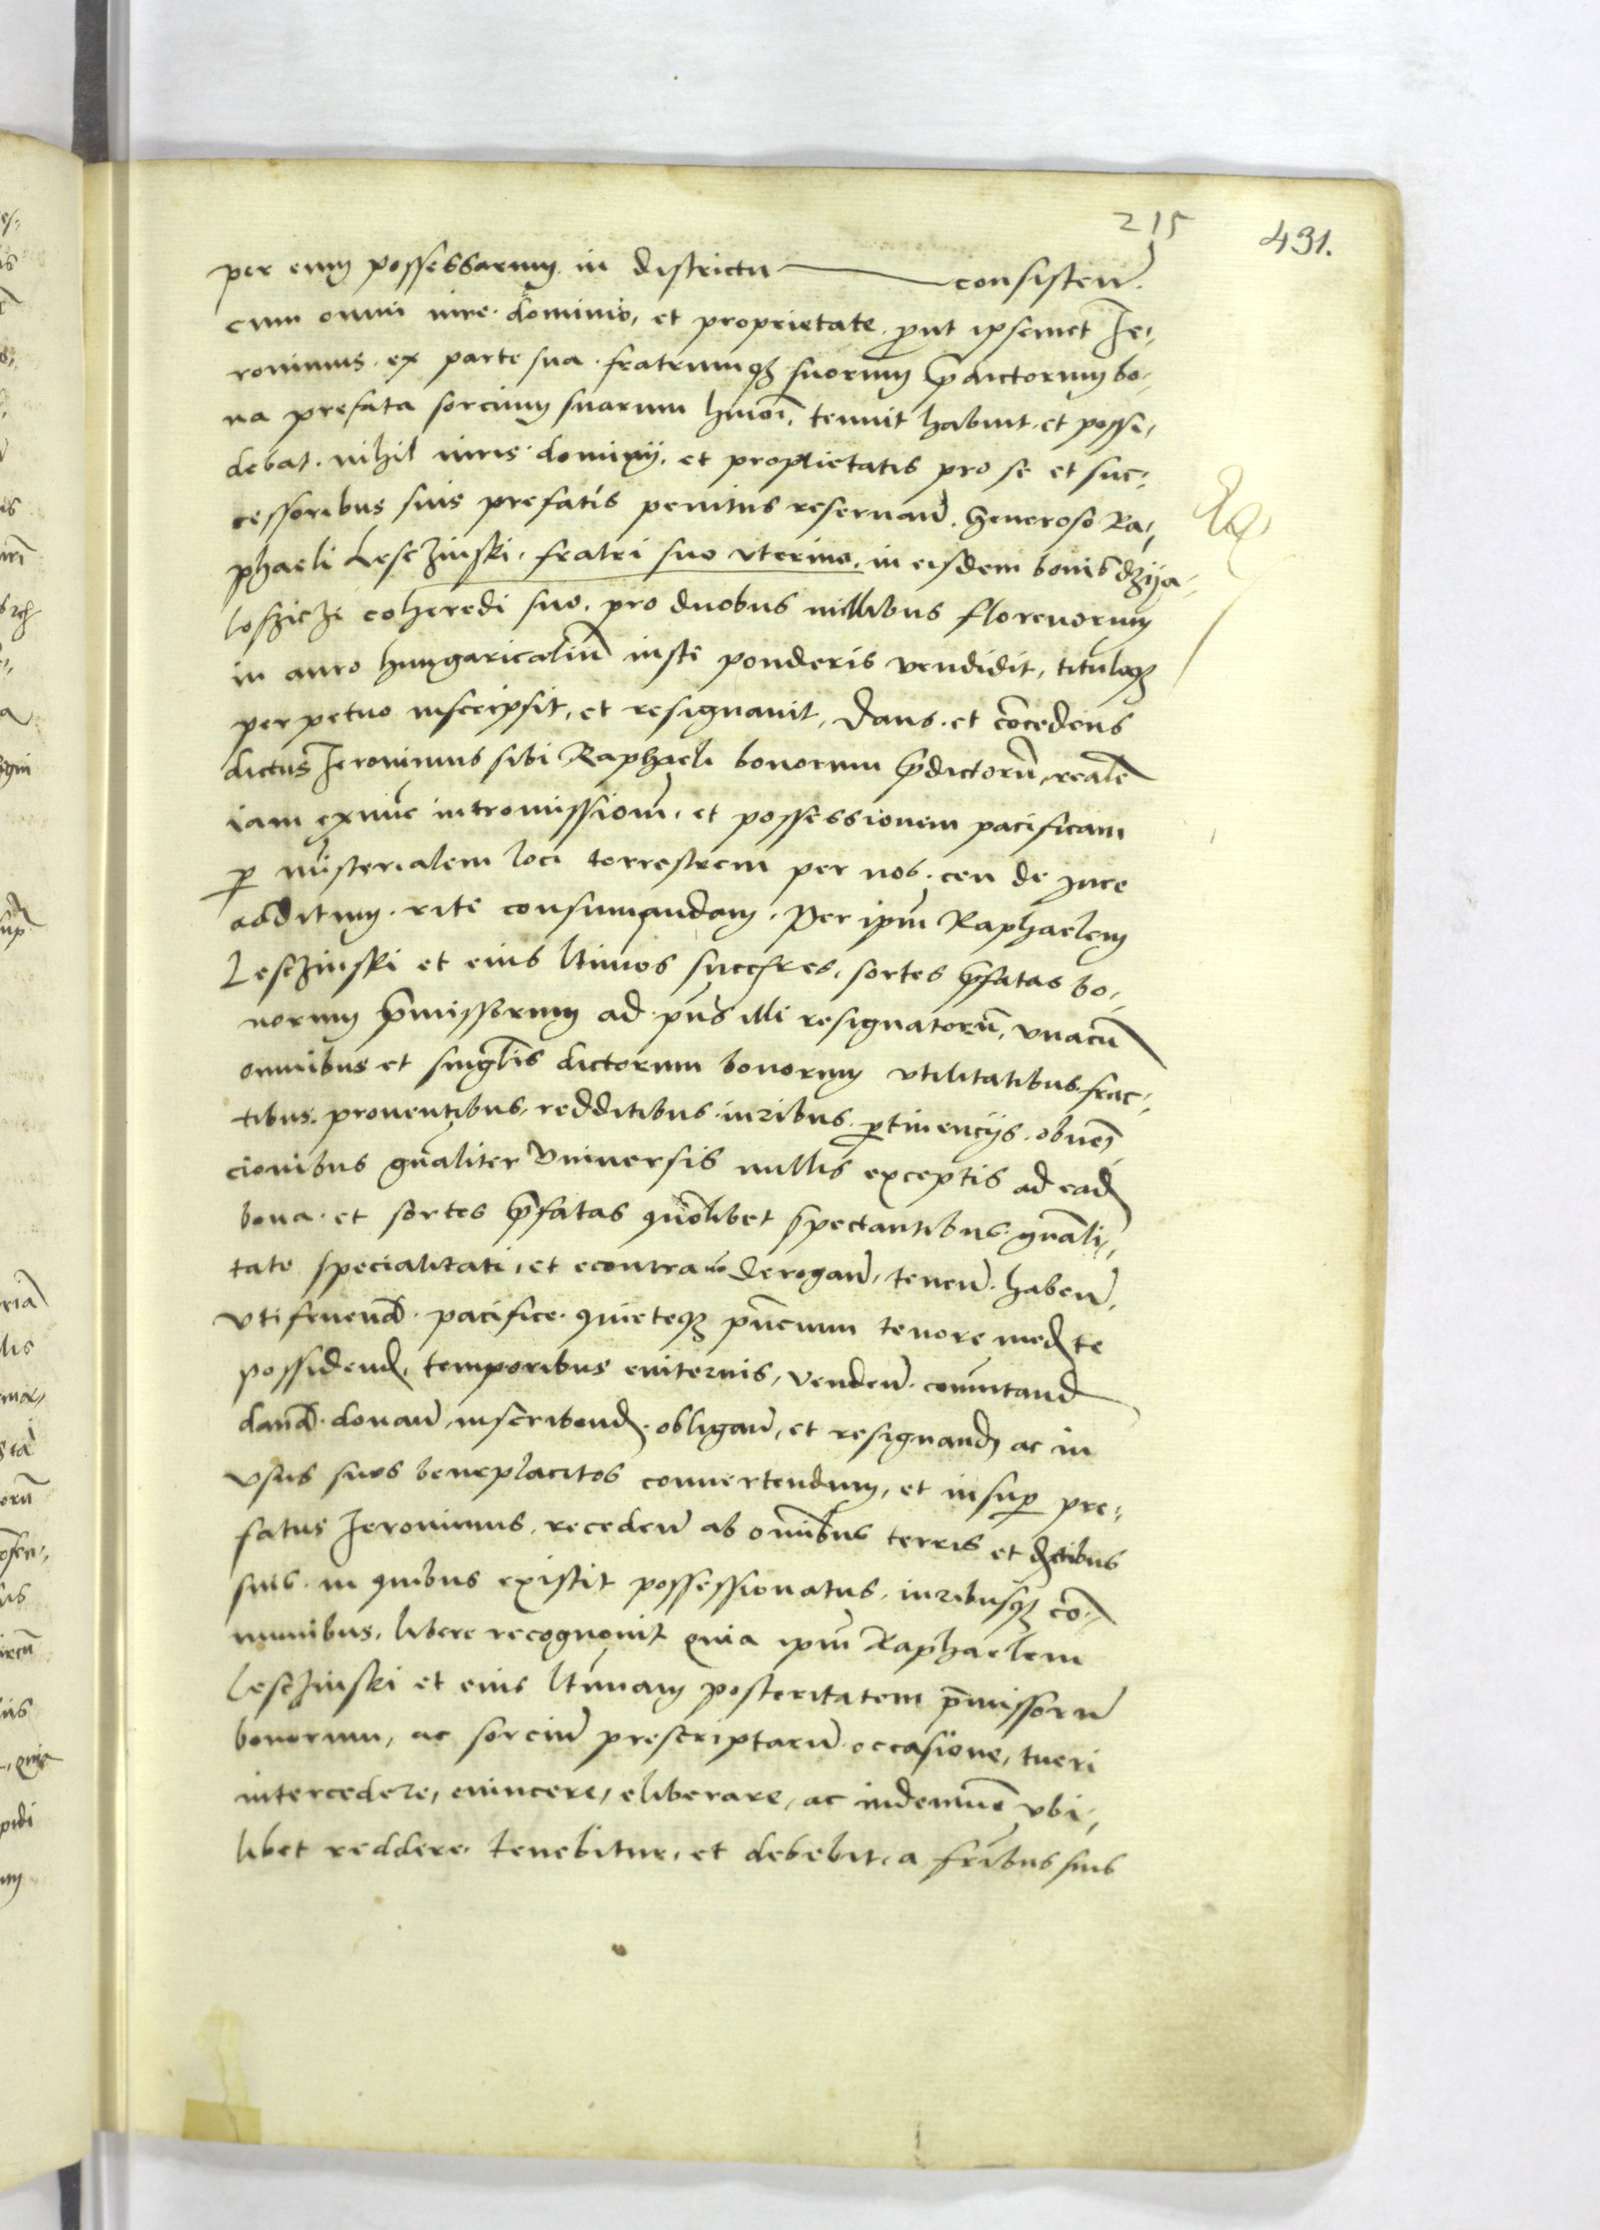 215
491.
per eum possessarum in districtu consisten̄.
cum omni iure dominio, et proprietate prout ipsemet Je-
ronimus ex parte sua fratrumqʒ suorum p̄dictorum bo-
na prefata sorcium suarum hmōi, tenuit habuit et possi-
debat. nihil iuris dominij, et proprietatis pro se et suc-
cessoribus suis prefatis penitus reseruan̄. Generoso Ra-
phaeli Lesczinski, fratri suo vterino, in eisdem bonis dzija-
losziczi coheredi suo, pro duobus millibus florenorum
in auro hungaricaliū iusti ponderis vendidit, tituloqʒ
perpetuo inscripsit, et resignauit, Dans et cōcedens
dictus Jeronimus sibi Raphaeli bonorum p̄dictorū, realē
iam exnūc intromissionē, et possessionem pacificam
p mīsterialem loci terrestrem per nos ceu de iure
additum rite consumandam. Per ipm̄ Raphaelem
Lesczinski et eius ltimos succēs̄res, sortes p̄fatas bo-
norum p̄missorum ad pn̄s illi resignatorū, vnacū
omnibus et singl̄is dictorum bonorum vtilitatibus fruc-
tibus, prouentibus, redditibus iuribus ptinencijs obuen-
cionibus gn̄aliter vniuersis nullis exceptis ad ead̄
bona et sortes p̄fatas quōlibet spectantibus gn̄ali-
tate specialitati, et econtra nō derogan̄, tenen̄ haben̄,
vtifruend̄ pacifice quieteqʒ pn̄cium tenore med̄te
possidend̄, temporibus eniternis, venden̄ comutand̄
dand̄ donan̄ inscribend̄ obligan̄, et resignand̄ ac in
vsus suos beneplacitos conuertendum, et insup pre-
fatus Jeronimus, receden̄ ab om̄ibus terris et d̄ctibus
suis in quibus existit possessionatus, iuribusqʒ cō-
munibus, libere recognouit quia ipm̄ Raphaelem
Lesczinski et eius ltimam posteritatem p̄missorū
bonorum, ac sorciū prescriptarū occasione, tueri
intercedere, euincere, eliberare, ac indemnē vbi-
libet reddere tenebitur, et debebit, a fr̄ibus suis